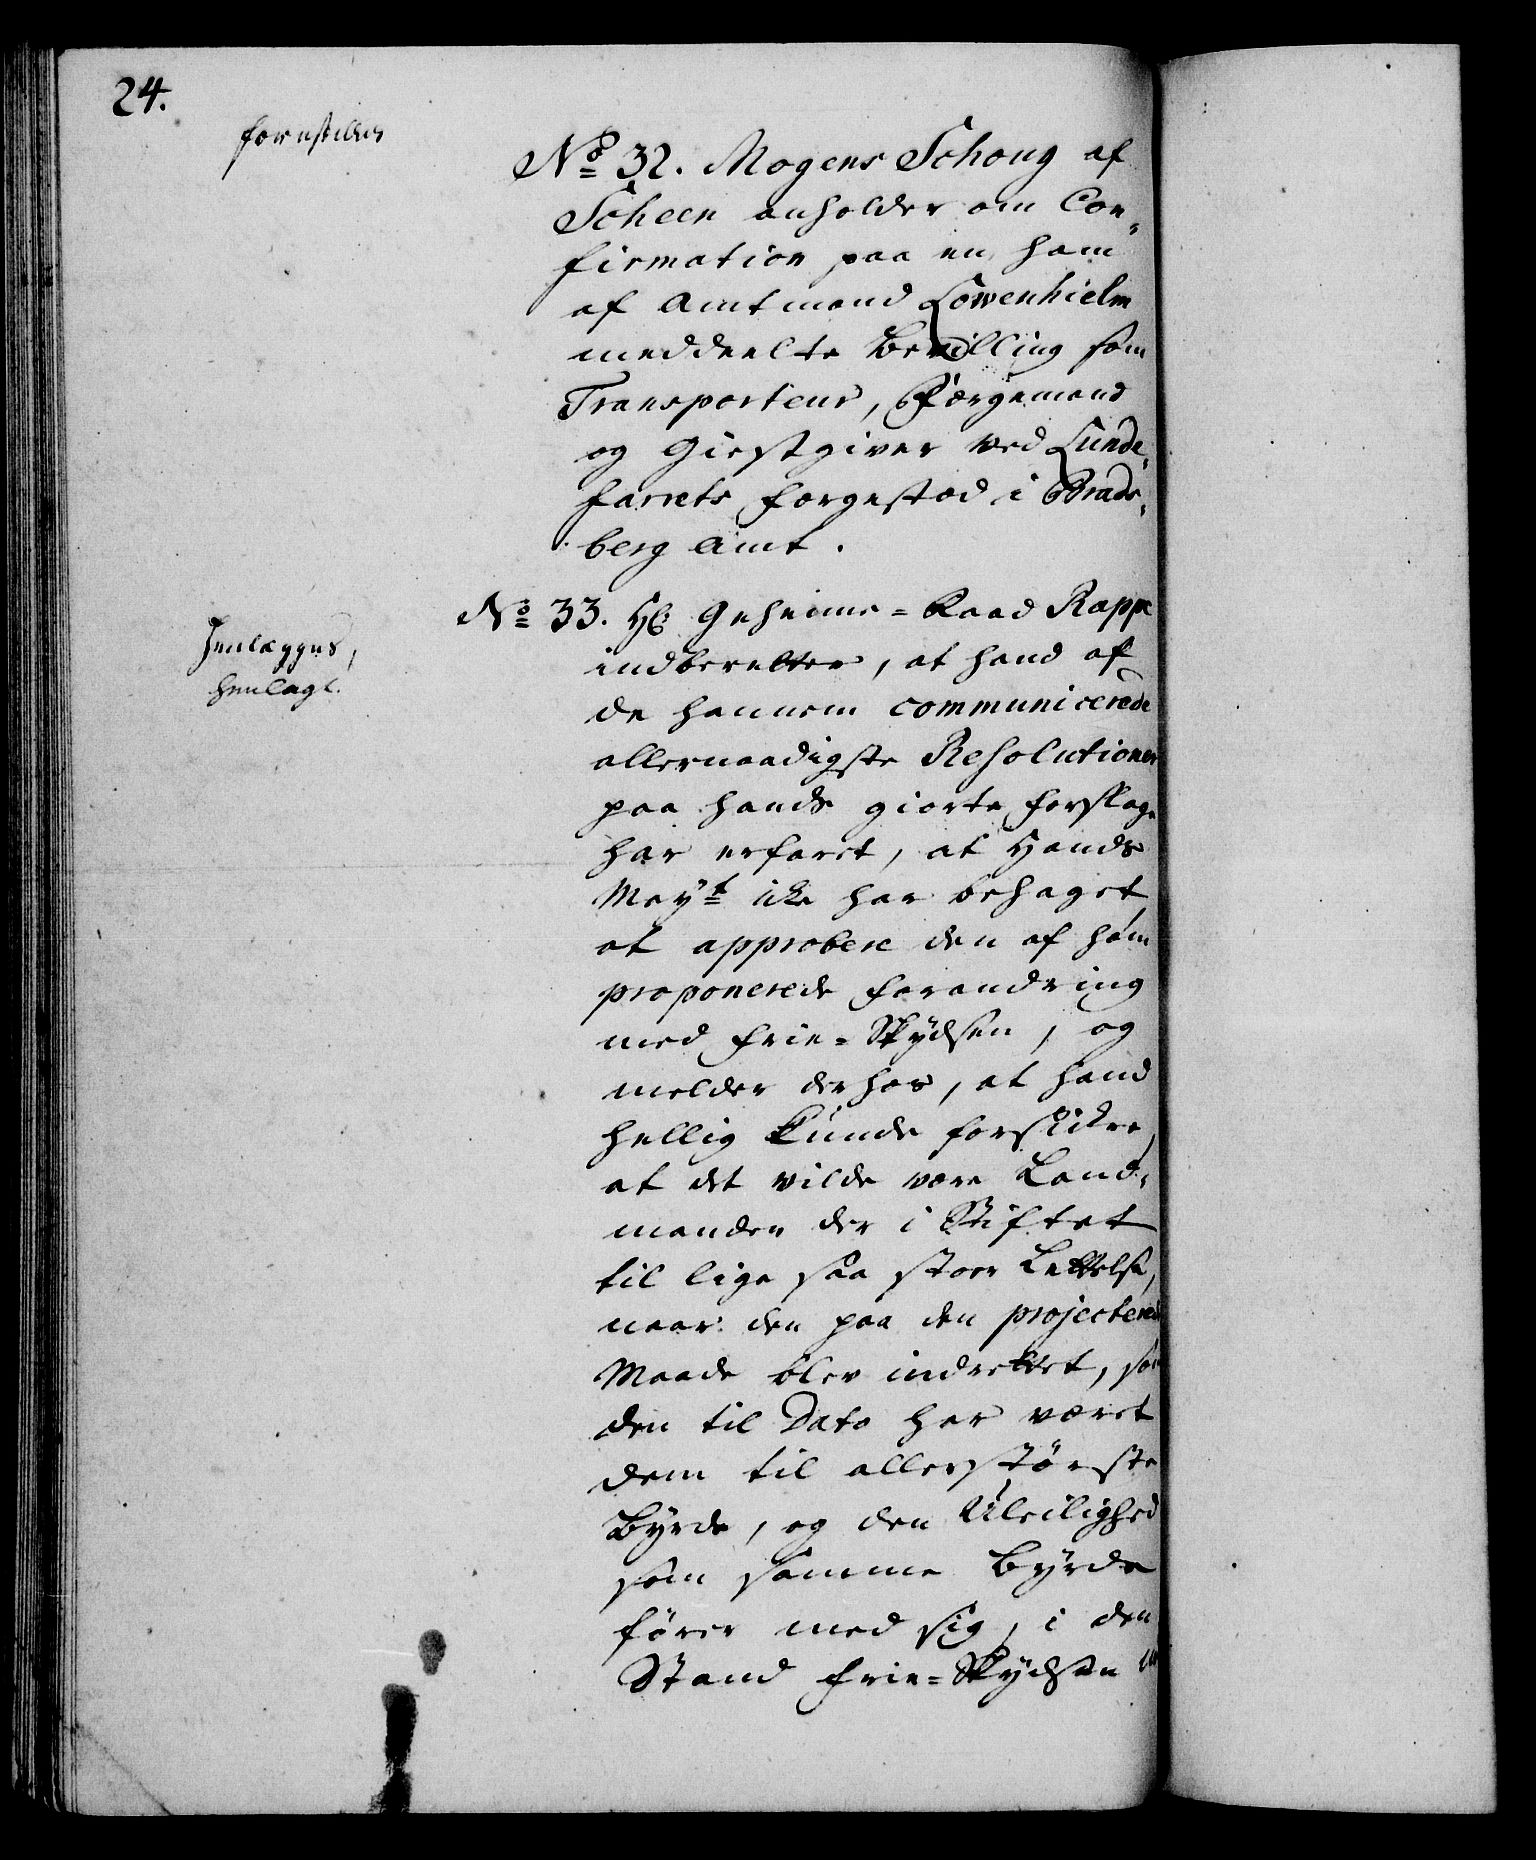 24.
forestilles
No 32. Mogens Schoug af
Scheen anholder om Con-
firmation paa en ham
af Amtmand Löwenhielm
meddeelte Bevilling som
Transporteur, Færgemand
og Giestgiver ved Lunde-
farrets færgestæd i Brads-
berg Amt.
Henlægges,
henlagt.
No 33. Hr Geheime-Raad Rappe
indberetter, at hand af
de hannem communicerede
allernaadigste Resolutioner
paa hands giorte forslage
har erfaret, at Hands
Mayt icke har behaget
at approbere den af ham
proponerede forandring
med frie-Skydsen, og
melder derhos, at hand
hellig kunde forsickre,
at det vilde være Land-
manden der i Stiftet
til lige saa stoer Lettelse,
naar den paa den projecterede
Maade blev indrettet, som
den til Dato har været
dem til allerstørste
Byrde, og den Uleilighed
som samme Byrde
fører med sig, i den
Stand frie-Skydsen